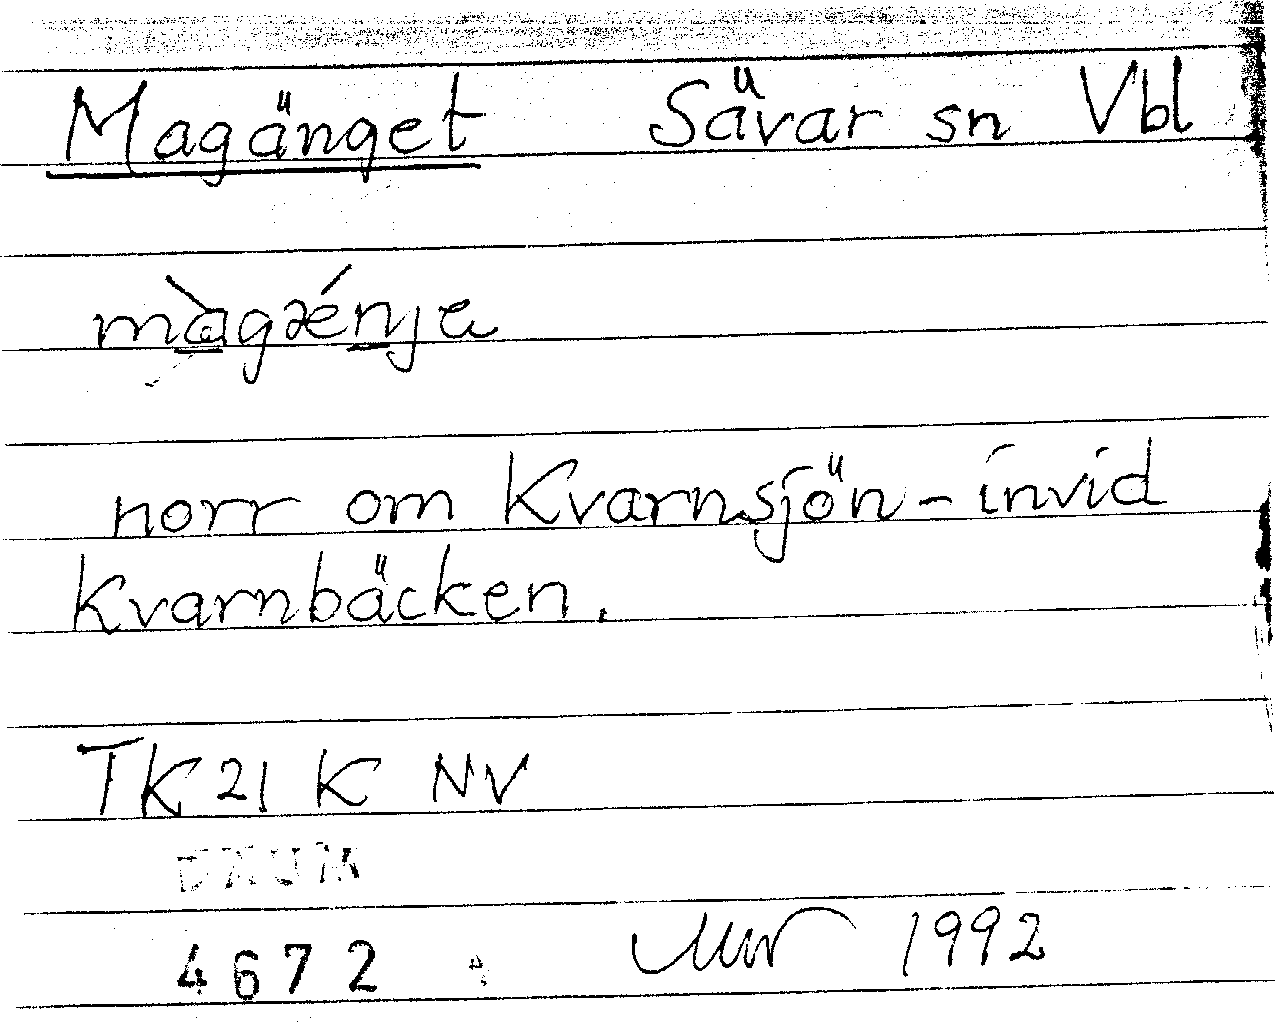 Magänget Sävar sn Vbl
màgǽnje
norr om Kvarnsjön - invid
Kvarnbäcken.
TK 21 K NV
DAUM
4672 1992